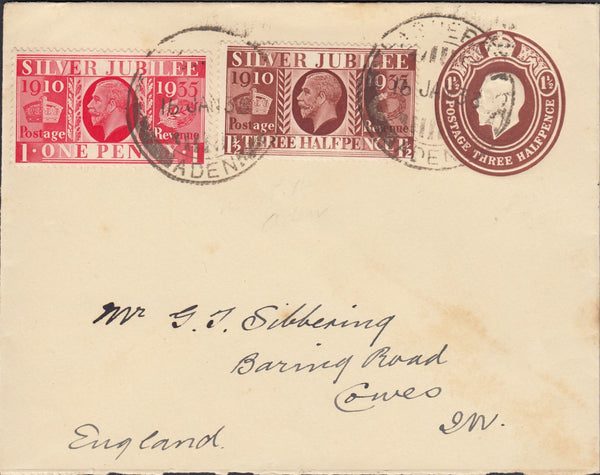 SILVER JUBILEE
1910 1935
Postage Revenue
1 · ONE PENNY · 1
SILVER JUBILEE
1910 1935
Postage Revenue
1½ THREE HALFPENCE 1½
1½ 1½
POSTAGE THREE HALFPENCE
16 JAN
ADEN
16 JA
ADEN
Mr G. J. Sibbering
Baring Road
Cowes
I.W.
England.